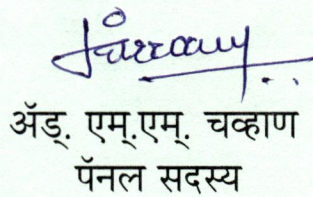 ॲड्. एम्.एम्. चव्हाण
पॅनल सदस्य